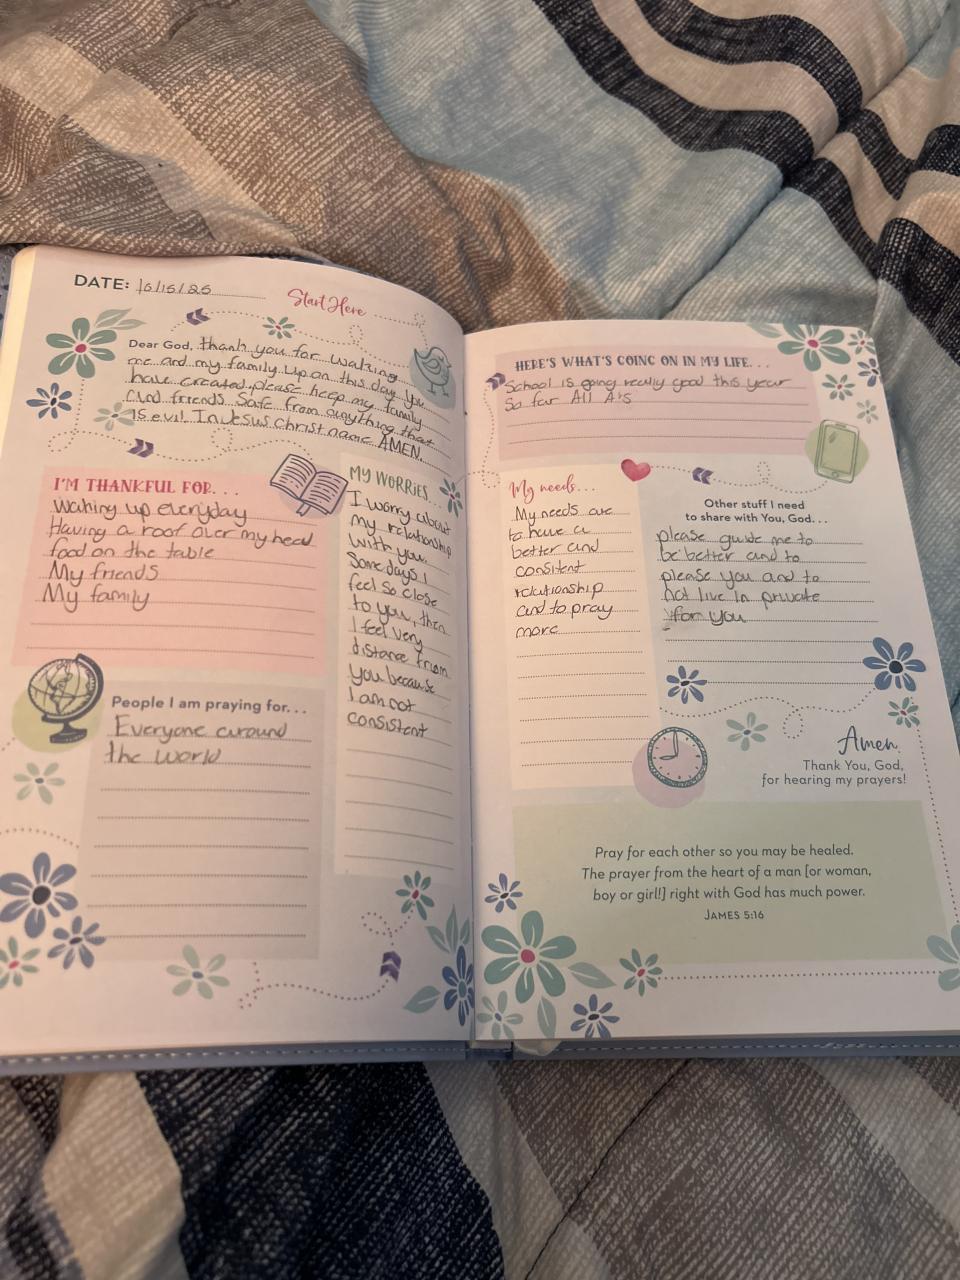 DATE: 10/15/25
Start Here
Dear God, thank you for waking
me and my family up on this day you
have created, please keep my family
and friends safe from anything that
is evil. In Jesus christ name AMEN.
I'M THANKFUL FOR...
Waking up everyday
Having a roof over my head
food on the table
My friends
My family
MY WORRIES...
I worry about
my relationship
with you.
Some days I
feel so close
to you, then
I feel very
distance from
you because
I am not
consistent
People I am praying for...
Everyone around
the world
HERE'S WHAT'S GOING ON IN MY LIFE...
School is going really good this year
So far All A's
My needs...
My needs are
to have a
better and
consitent
relationship
and to pray
more
Other stuff I need
to share with You, God...
please guide me to
be better and to
please you and to
not live in private
for you
Amen
Thank You, God,
for hearing my prayers!
Pray for each other so you may be healed.
The prayer from the heart of a man [or woman,
boy or girl!] right with God has much power.
JAMES 5:16